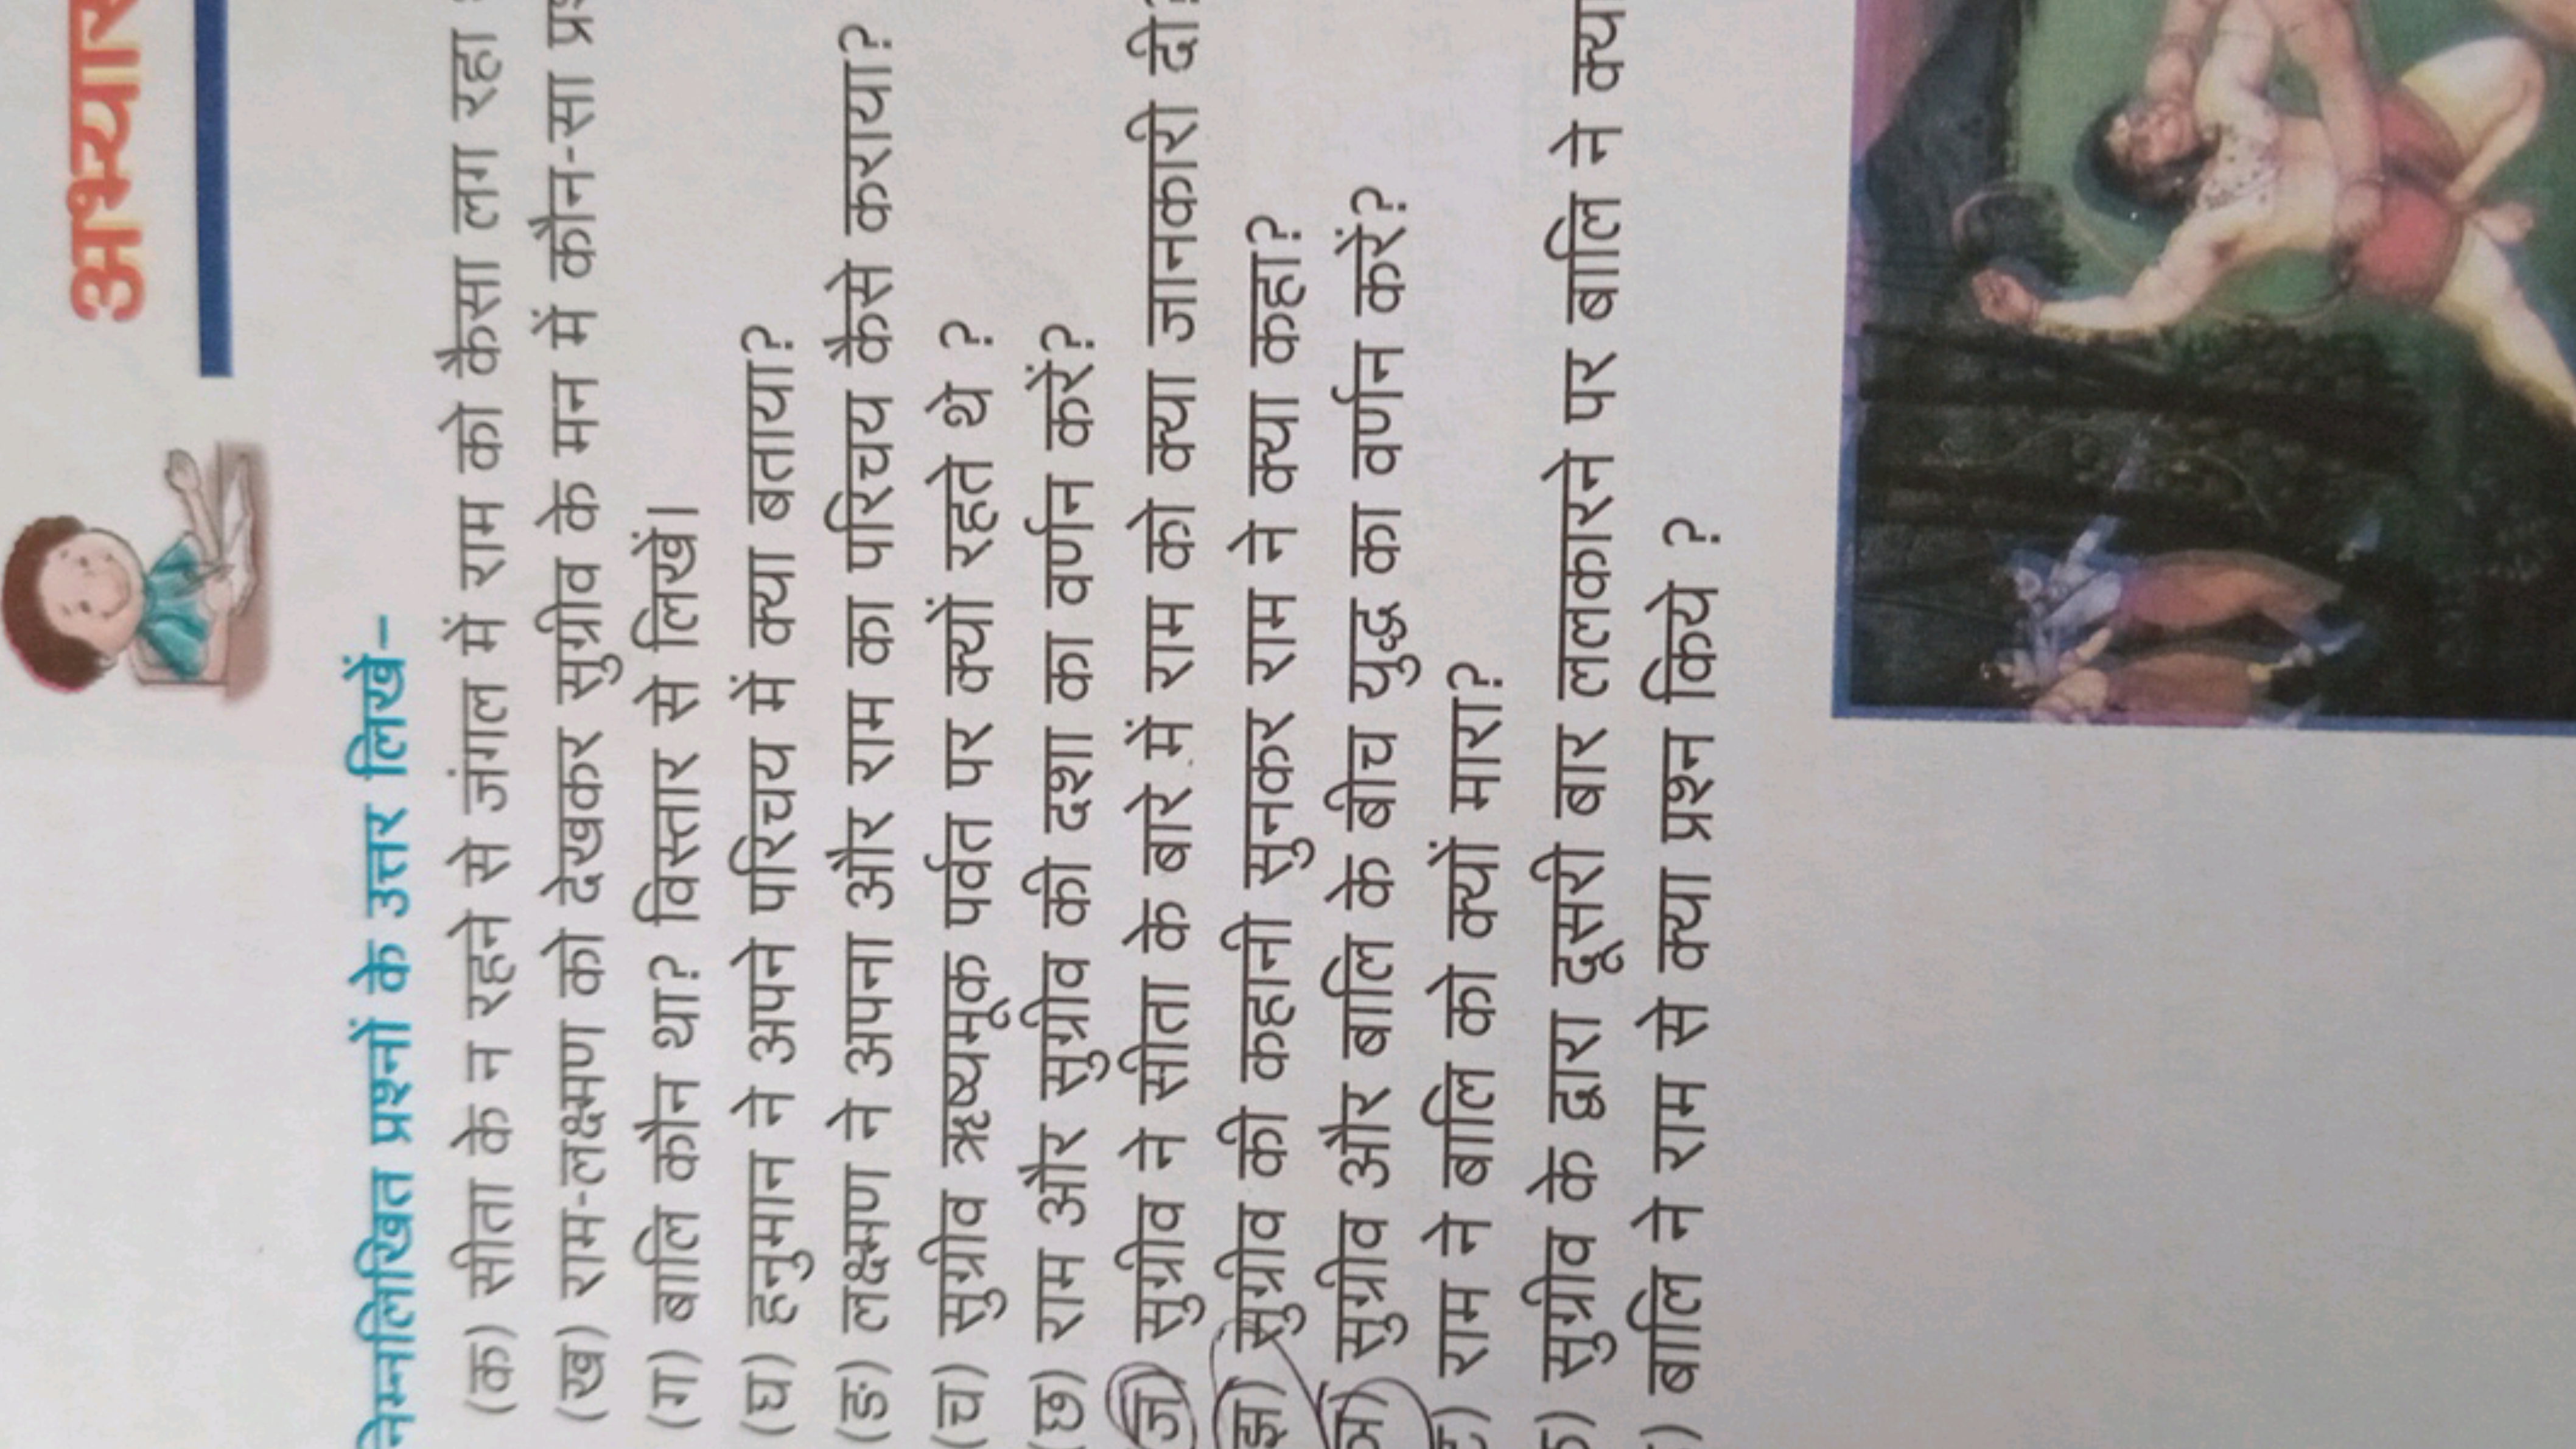 अभ्यास
निम्नलिखित प्रश्नों के उत्तर लिखें–
(क) सीता के न रहने से जंगल में राम को कैसा लग रहा
(ख) राम-लक्ष्मण को देखकर सुग्रीव के मन में कौन-सा
(ग) बालि कौन था? विस्तार से लिखें।
(घ) हनुमान ने अपने परिचय में क्या बताया?
(ङ) लक्ष्मण ने अपना और राम का परिचय कैसे कराया?
(च) सुग्रीव ऋष्यमूक पर्वत पर क्यों रहते थे ?
(छ) राम और सुग्रीव की दशा का वर्णन करें?
(ज) सुग्रीव ने सीता के बारे में राम को क्या जानकारी दी?
(झ) सुग्रीव की कहानी सुनकर राम ने क्या कहा?
(ञ) सुग्रीव और बालि के बीच युद्ध का वर्णन करें?
) राम ने बालि को क्यों मारा?
) सुग्रीव के द्वारा दूसरी बार ललकारने पर बालि ने क्या
) बालि ने राम से क्या प्रश्न किये ?